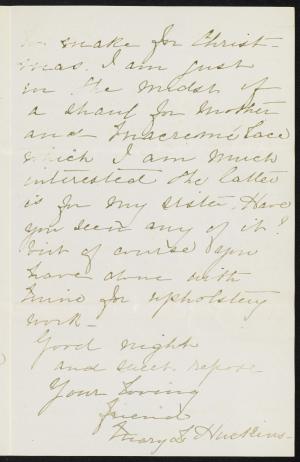 to make for Christ-
mas. I am just
in the midst of
a shawl for Mother
and Macremé lace
which I am much
interested the latter
is for my sister. Have
you seen any of it?
but of course you
have done with
mine for upholstery
work -
Good night
and sweet repose
Your loving
friend
Mary L Huckins -